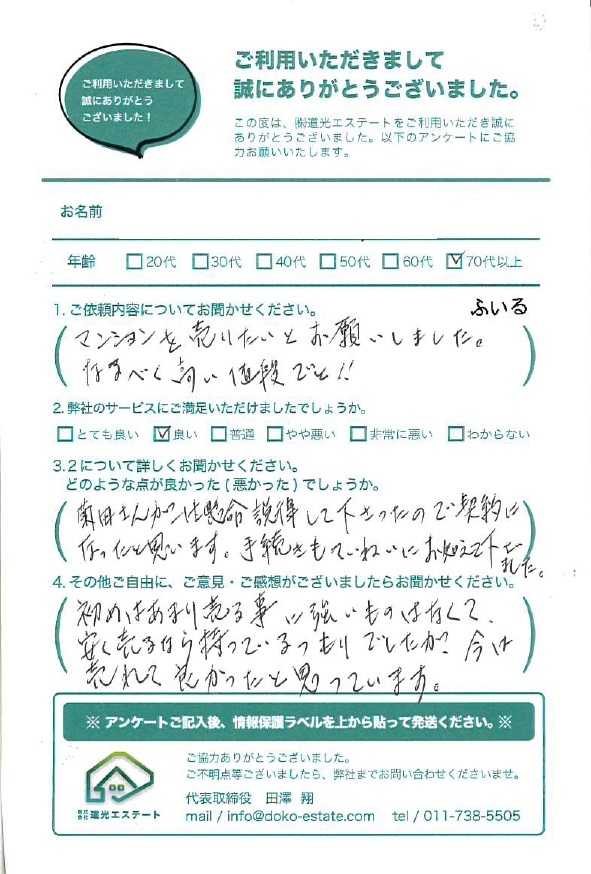 ご利用いただきまして
誠にありがとう
ございました！
ご利用いただきまして
誠にありがとうございました。
この度は、㈱道光エステートをご利用いただき誠に
ありがとうございました。以下のアンケートにご協
力お願いいたします。
お名前
年齢 □20代 □30代 □40代 □50代 □60代 ☑70代以上
1. ご依頼内容についてお聞かせください。
ふいる
マンションを売りたいとお願いしました。
なるべく高い値段でと!!
2. 弊社のサービスにご満足いただけましたでしょうか。
□とても良い ☑良い □普通 □やや悪い □非常に悪い □わからない
3. 2について詳しくお聞かせください。
どのような点が良かった(悪かった)でしょうか。
さんが一生懸命説得して下さったので契約に
なったと思います。手続きもていねいにお知えて下さい
ました。
4. その他ご自由に、ご意見・ご感想がございましたらお聞かせください。
初めはあまり売る事に強いものはなくて、
安く売るなら持っているつもりでしたが、今は
売れて良かったと思っています。
※ アンケートご記入後、情報保護ラベルを上から貼って発送ください。※
ご協力ありがとうございました。
ご不明点等ございましたら、弊社までお問い合わせくださいませ。
代表取締役 田澤 翔
株式会社 道光エステート
mail / info@doko-estate.com tel / 011-738-5505